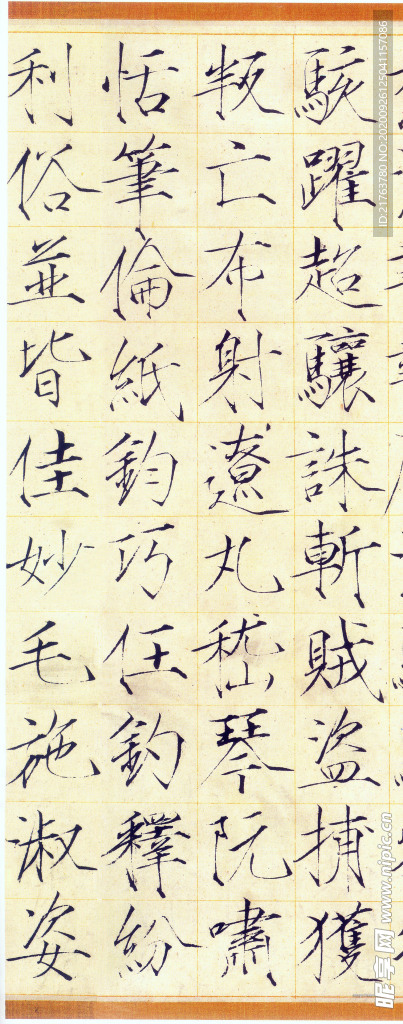 駭躍超驤誅斬賊盜捕獲
叛亡布射遼丸嵇琴阮嘯
恬筆倫紙鈞巧任釣釋紛
利俗並皆佳妙毛施淑姿
ID:21763780 NO:20200926125041157086
昵享网 www.nipic.cn